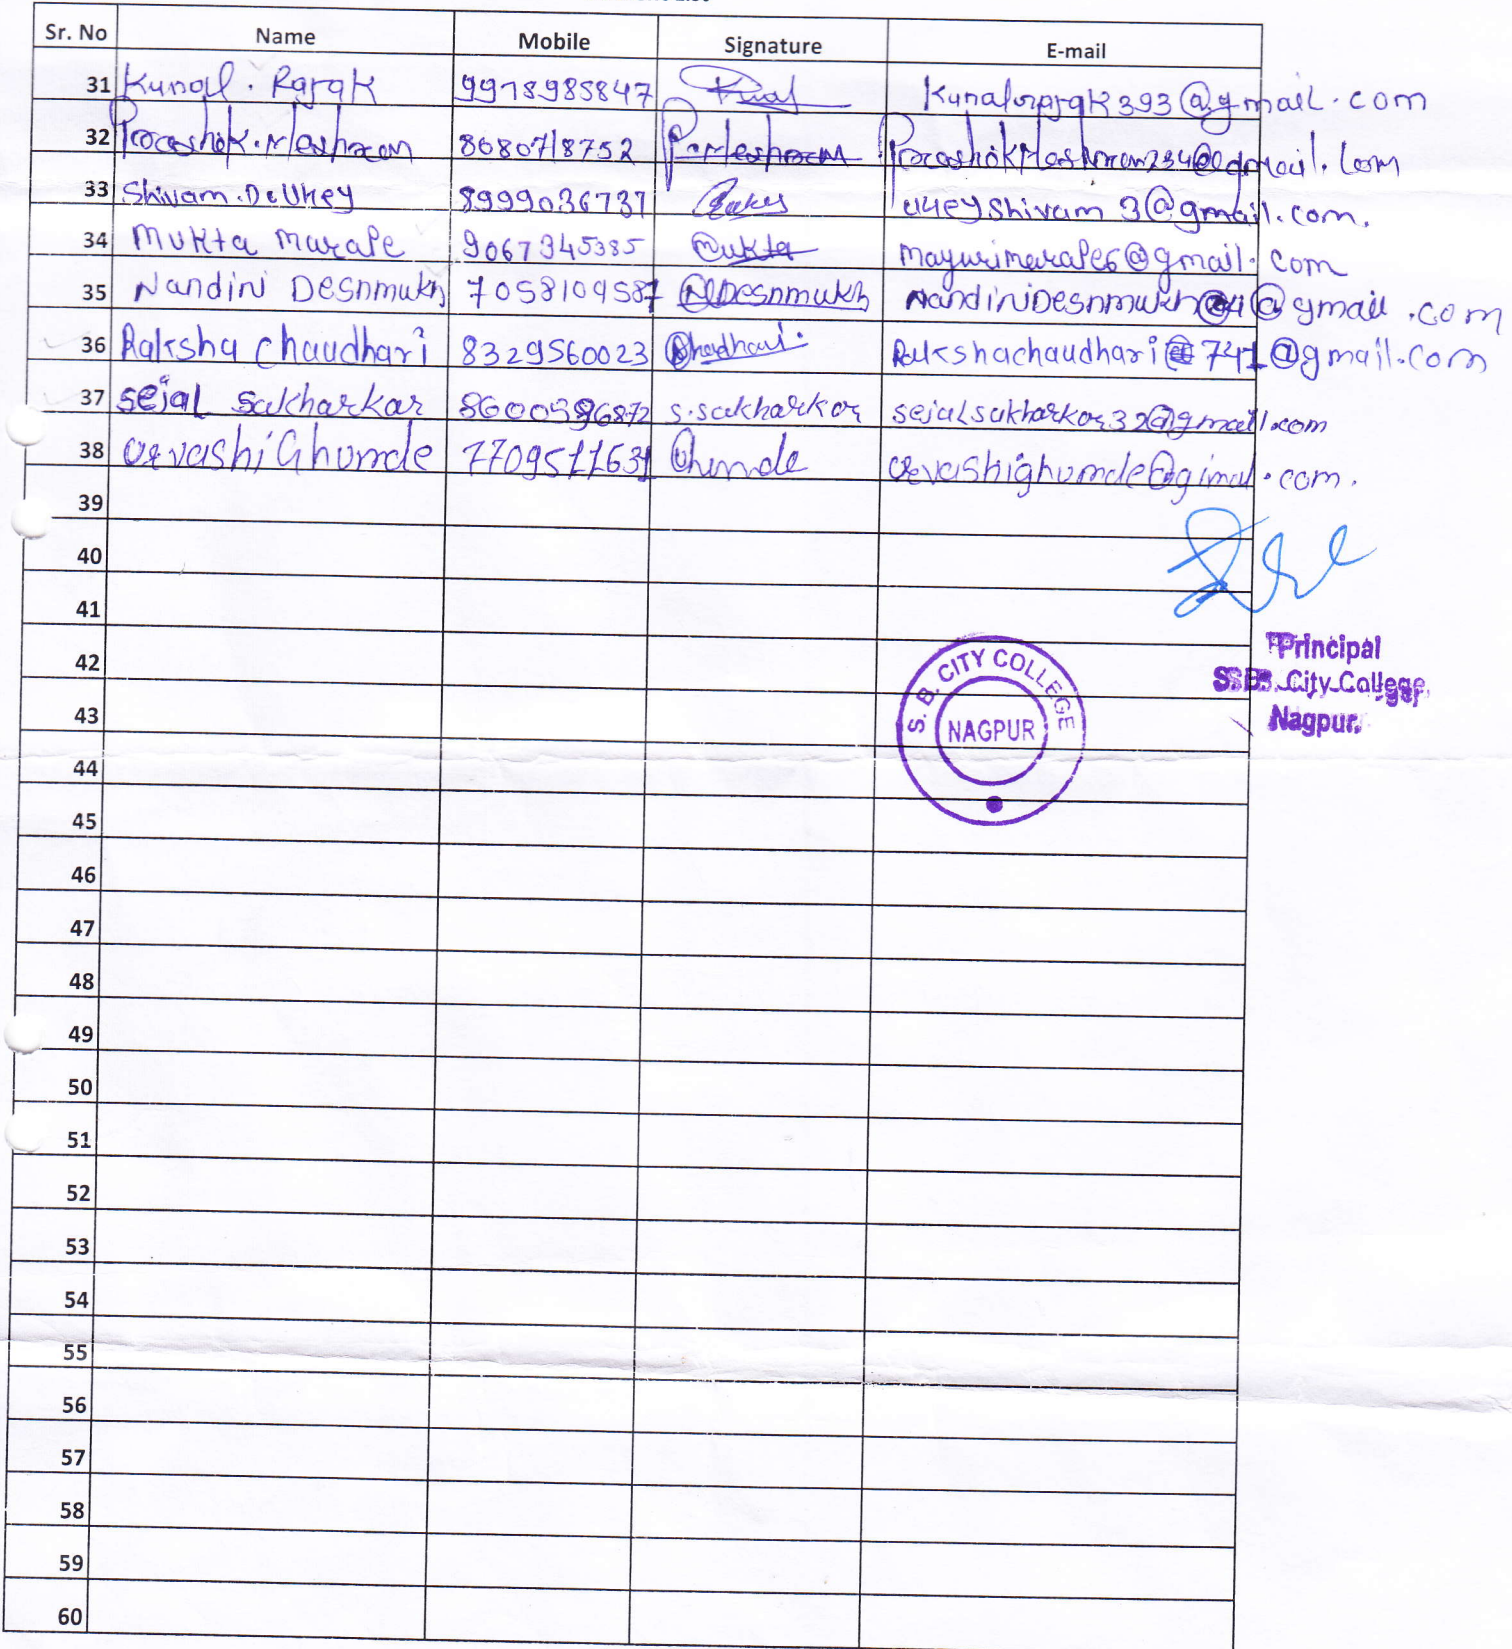 Sr. No Name Mobile Signature E-mail
31 Kunal. Rarak 9978985847 Kunal Kunalrarak393@gmail.com
32 Prashik.Meshram 8680718752 P.Meshram PrashikMeshram234@gmail.com
33 Shivam.D.Ukey 8999036737 Ukey ukeyshivam3@gmail.com.
34 Mukta Marape 9067345385 Mukta mayurimarape6@gmail.com
35 Nandini Deshmukh 7058109587 N.Deshmukh NandiniDeshmukh24@gmail.com
36 Raksha Chaudhari 8329560023 Rakshachaudhari741@gmail.com
37 sejal sakharkar 8600396872 s.sakharkar sejalsakharkar32@gmail.com
38 UrvashiGhumde 7709511631 Ghumde urvashighumde@gimal.com.
39
40
41
42
43
44
45
46
47
48
49
50
51
52
53
54
55
56
57
58
59
60
S. B. CITY COLLEGE
NAGPUR
Principal
S.B. City College,
Nagpur.